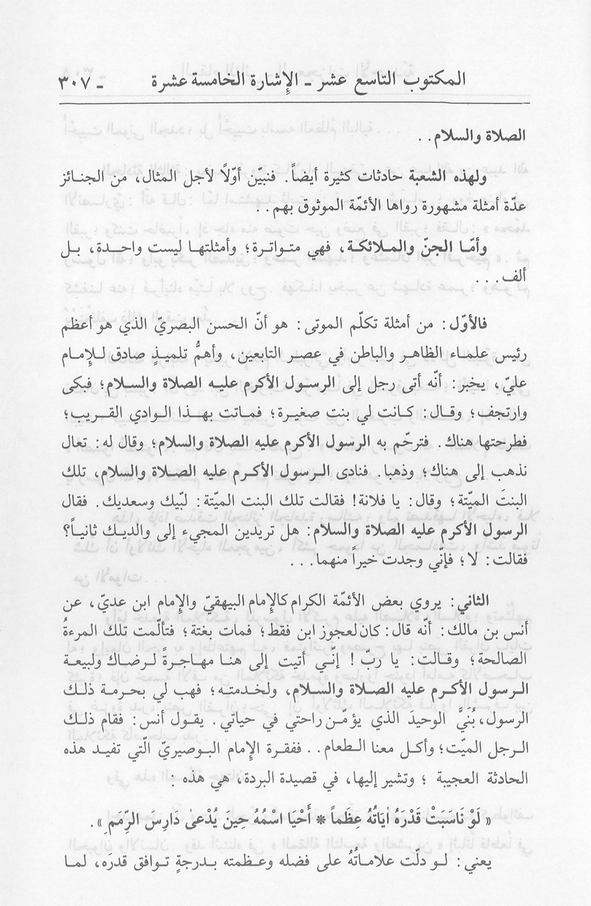 المكتوب التاسع عشر ـ الإشارة الخامسة عشرة ـ ٣٠٧
الصلاة والسلام . .
ولهذه الشعبة حادثات كثيرة أيضاً. فنبيّن أوّلًا لأجل المثال، من الجنائز
عدّة أمثلة مشهورة رواها الأئمّة الموثوق بهم . .
وأمّا الجنّ والملائكة، فهي متواترة؛ وأمثلتها ليست واحدة، بل
ألف . . .
فالأوّل: من أمثلة تكلّم الموتى: هو أنّ الحسن البصريّ الذي هو أعظم
رئيس علماء الظاهر والباطن في عصر التابعين، وأهمُّ تلميذٍ صادق للإمام
عليّ، يخبر: أنّه أتى رجل إلى الرسول الأكرم عليه الصلاة والسلام؛ فبكى
وارتجف؛ وقال: كانت لي بنت صغيرة؛ فماتت بهذا الوادي القريب؛
فطرحتها هناك. فترحّم به الرسول الأكرم عليه الصلاة والسلام؛ وقال له: تعال
نذهب إلى هناك؛ وذهبا. فنادى الرسول الأكرم عليه الصلاة والسلام، تلك
البنتَ الميّتة؛ وقال: يا فلانة! فقالت تلك البنت الميّتة: لبّيك وسعديك. فقال
الرسول الأكرم عليه الصلاة والسلام: هل تريدين المجيء إلى والديك ثانياً؟
فقالت: لا؛ فإنّي وجدت خيراً منهما . . .
الثاني: يروي بعض الأئمّة الكرام كالإمام البيهقيّ والإمام ابن عديّ، عن
أنس بن مالك: أنّه قال: كان لعجوز ابن فقط؛ فمات بغتة؛ فتألّمت تلك المرءةُ
الصالحة؛ وقالت: يا ربّ! إنّي أتيت إلى هنا مهاجرةً لرضاك ولبيعة
الرسول الأكرم عليه الصلاة والسلام، ولخدمته؛ فهب لي بحرمة ذلك
الرسول، بُنَيَّ الوحيدَ الذي يؤمّن راحتي في حياتي. يقول أنس: فقام ذلك
الرجل الميّت؛ وأكل معنا الطعام . . ففقرة الإمام البوصيريّ الّتي تفيد هذه
الحادثة العجيبة ؛ وتشير إليها، في قصيدة البردة، هي هذه :
« لَوْ نَاسَبَتْ قَدْرَهُ اٰيَاتُهُ عِظَماً * أَحْيَا اسْمُهُ حِينَ يُدْعىٰ دَارِسَ الرِّمَمِ ».
يعني: لو دلّت علاماتُهُ على فضله وعظمته بدرجةٍ توافق قدرَه، لما